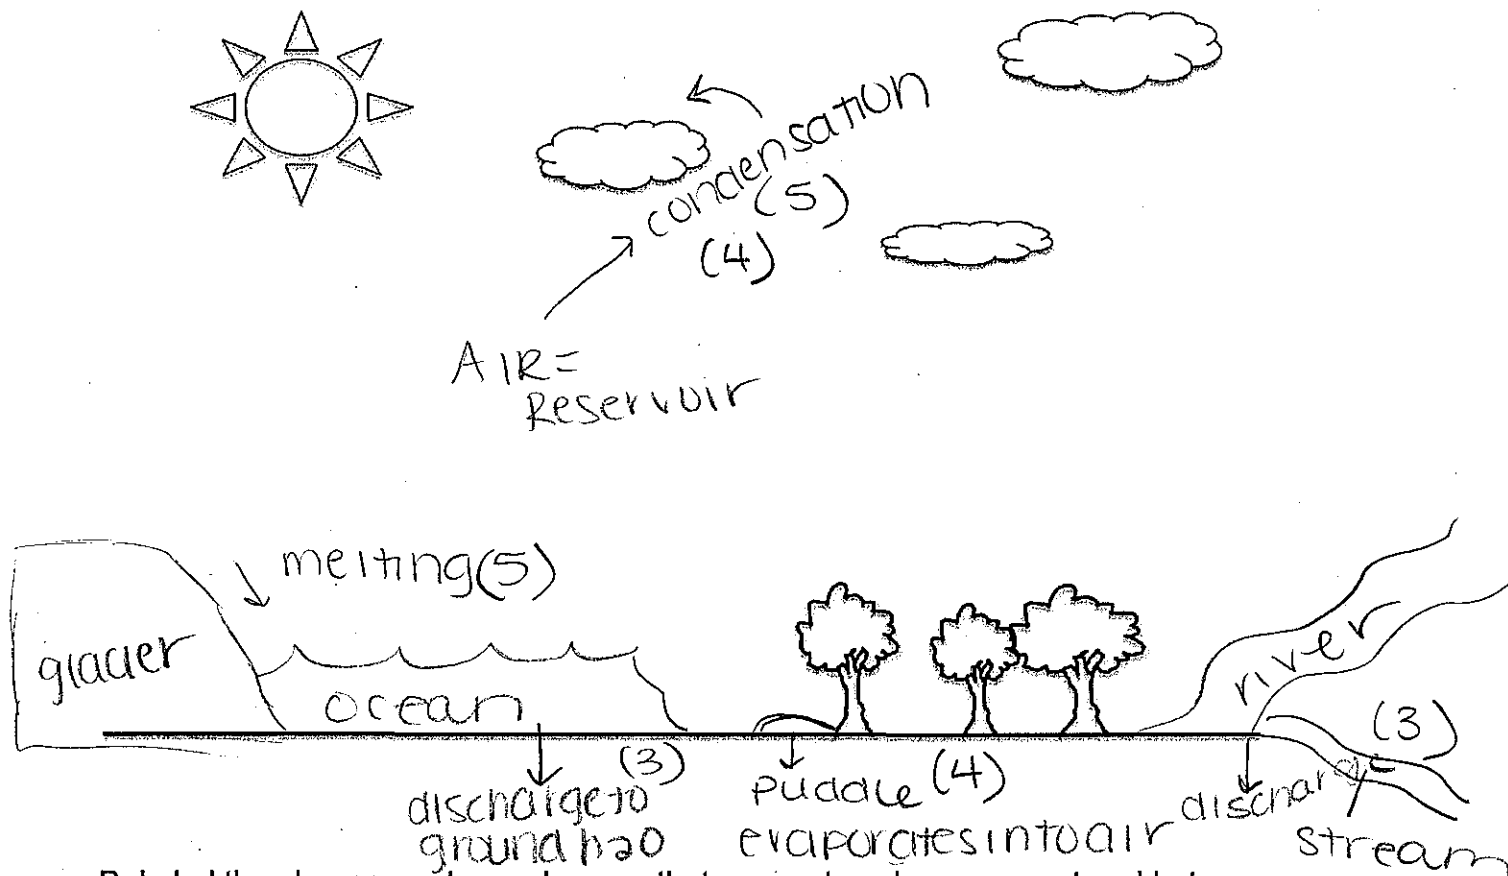 condensation
(5)
(4)
AIR=
Reservoir
melting(5)
glacier
ocean
river
(3)
(3)
discharge to
ground h20
puddle (4)
evaporates into air
discharge
stream